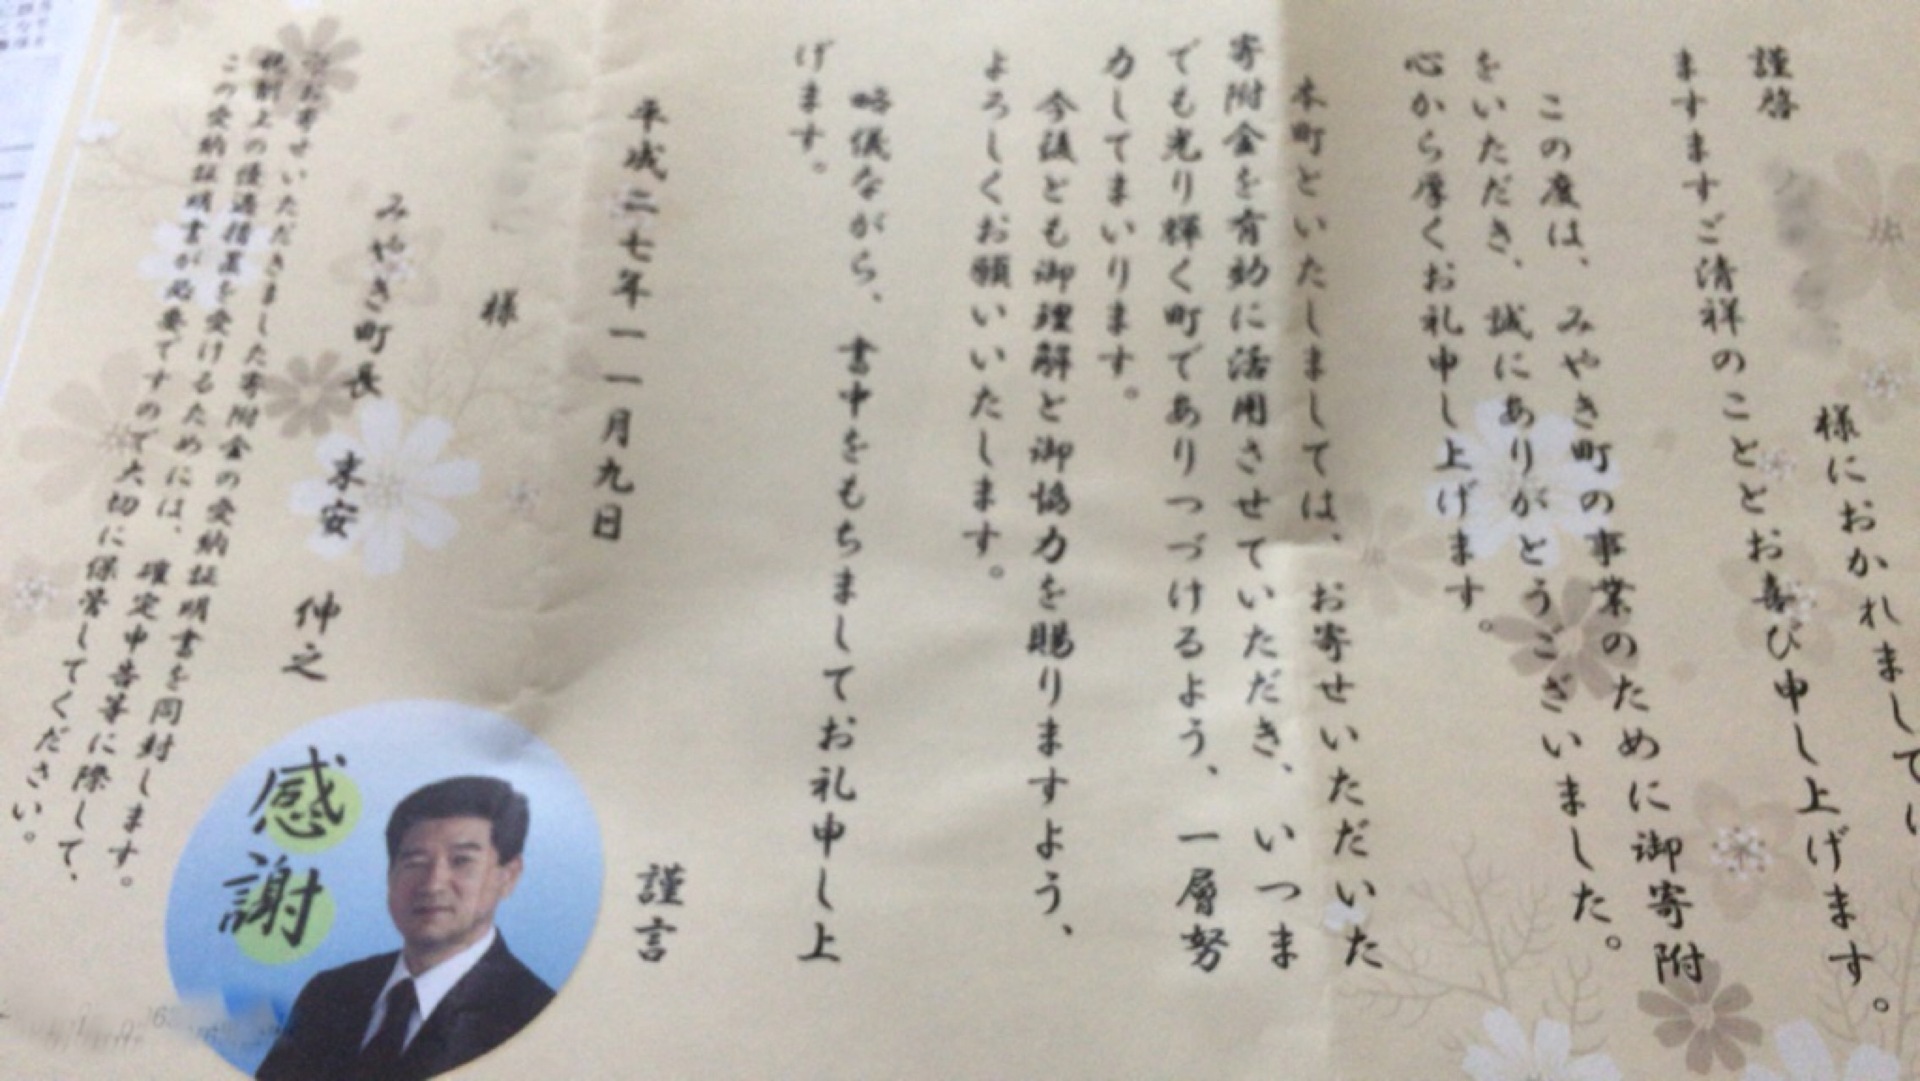 謹啓
様におかれましては
ますますご清祥のこととお喜び申し上げます。
この度は、みやき町の事業のために御寄附
をいただき、誠にありがとうございました。
心から厚くお礼申し上げます。
本町といたしましては、お寄せいただいた
寄附金を有効に活用させていただき、いつま
でも光り輝く町でありつづけるよう、一層努
力してまいります。
今後とも御理解と御協力を賜りますよう、
よろしくお願いいたします。
略儀ながら、書中をもちましてお礼申し上
げます。
謹言
平成二七年一一月九日
様
みやき町長 末安 伸之
お寄せいただきました寄附金の受納証明書を同封します。
税制上の優遇措置を受けるためには、確定申告等に際して、
この受納証明書が必要ですので大切に保管してください。
感謝